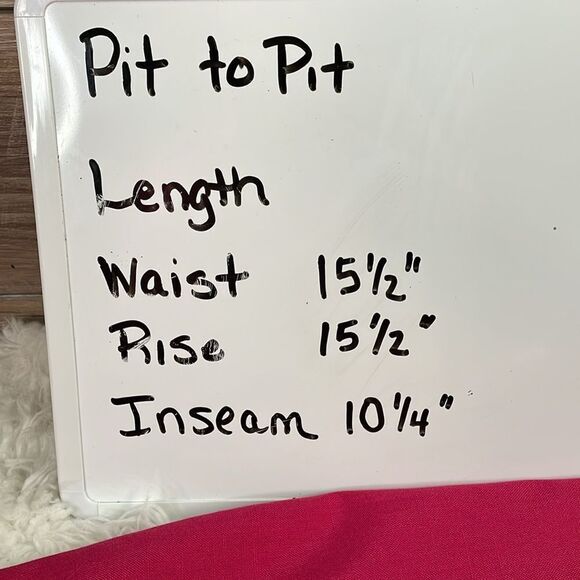 Pit to Pit
Length
Waist 15 1/2"
Rise 15 1/2"
Inseam 10 1/4"